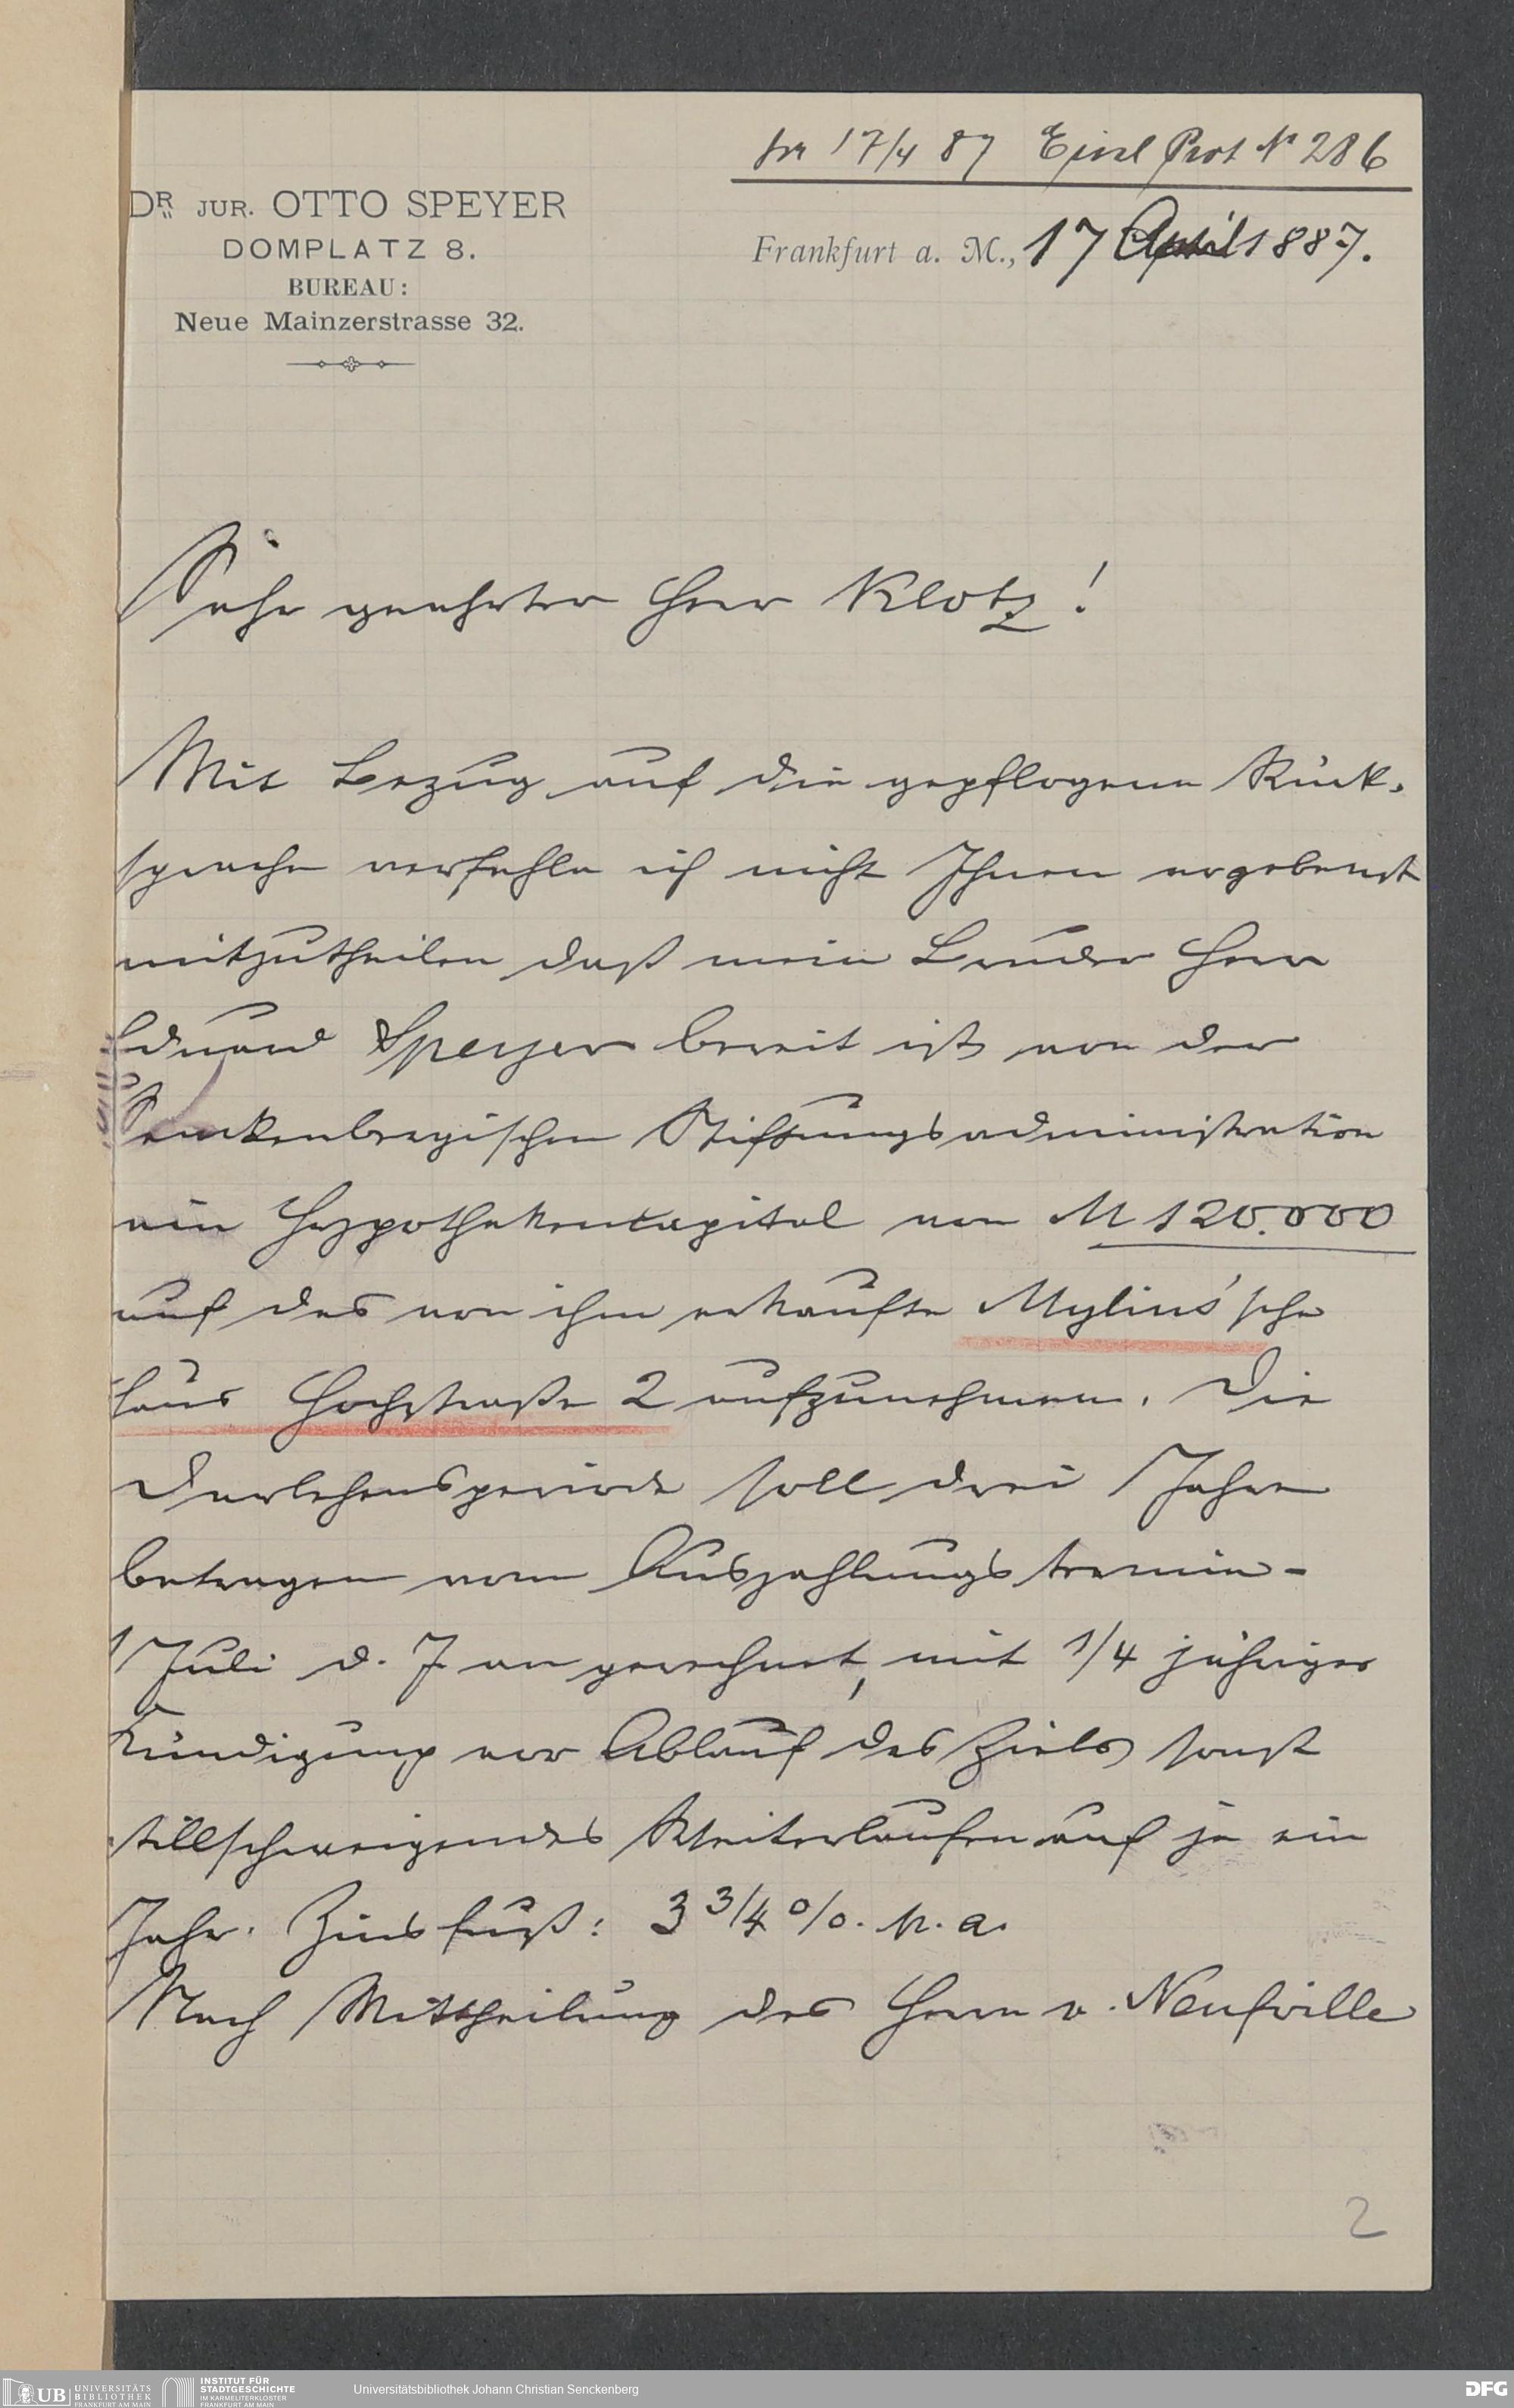 pr 17/4 87 Einl Prot N 286
DR JUR. OTTO SPEYER
DOMPLATZ 8.
BUREAU:
Neue Mainzerstrasse 32.
Frankfurt a. M., 17 April 1887.
Sehr geehrter Herr Klotz!
Mit Bezug auf die gepflogene Rück-
sprache verfehle ich nicht Ihnen ergebenst
mitzutheilen daß mein Bruder Herr
Eduard Speyer bereit ist von der
Senckenbergischen Stiftungsadministration
ein Hypothekencapital von M 120.000
auf das von ihm erkaufte Mylius'sche
Haus Hochstraße 2 aufzunehmen. Die
Darlehensperiode soll drei Jahre
betragen vom Auszahlungstermin -
1 Juli d. J. an gerechnet, mit 1/4 jähriger
Kündigung vor Ablauf des Ziels sonst
stillschweigendes Weiterlaufen auf je ein
Jahr. Zinsfuß: 3 3/4 %. p. a.
Nach Mittheilung des Herrn v. Neufville
2
UB UNIVERSITÄTS
BIBLIOTHEK
FRANKFURT AM MAIN
INSTITUT FÜR
STADTGESCHICHTE
IM KARMELITERKLOSTER
FRANKFURT AM MAIN
Universitätsbibliothek Johann Christian Senckenberg
DFG